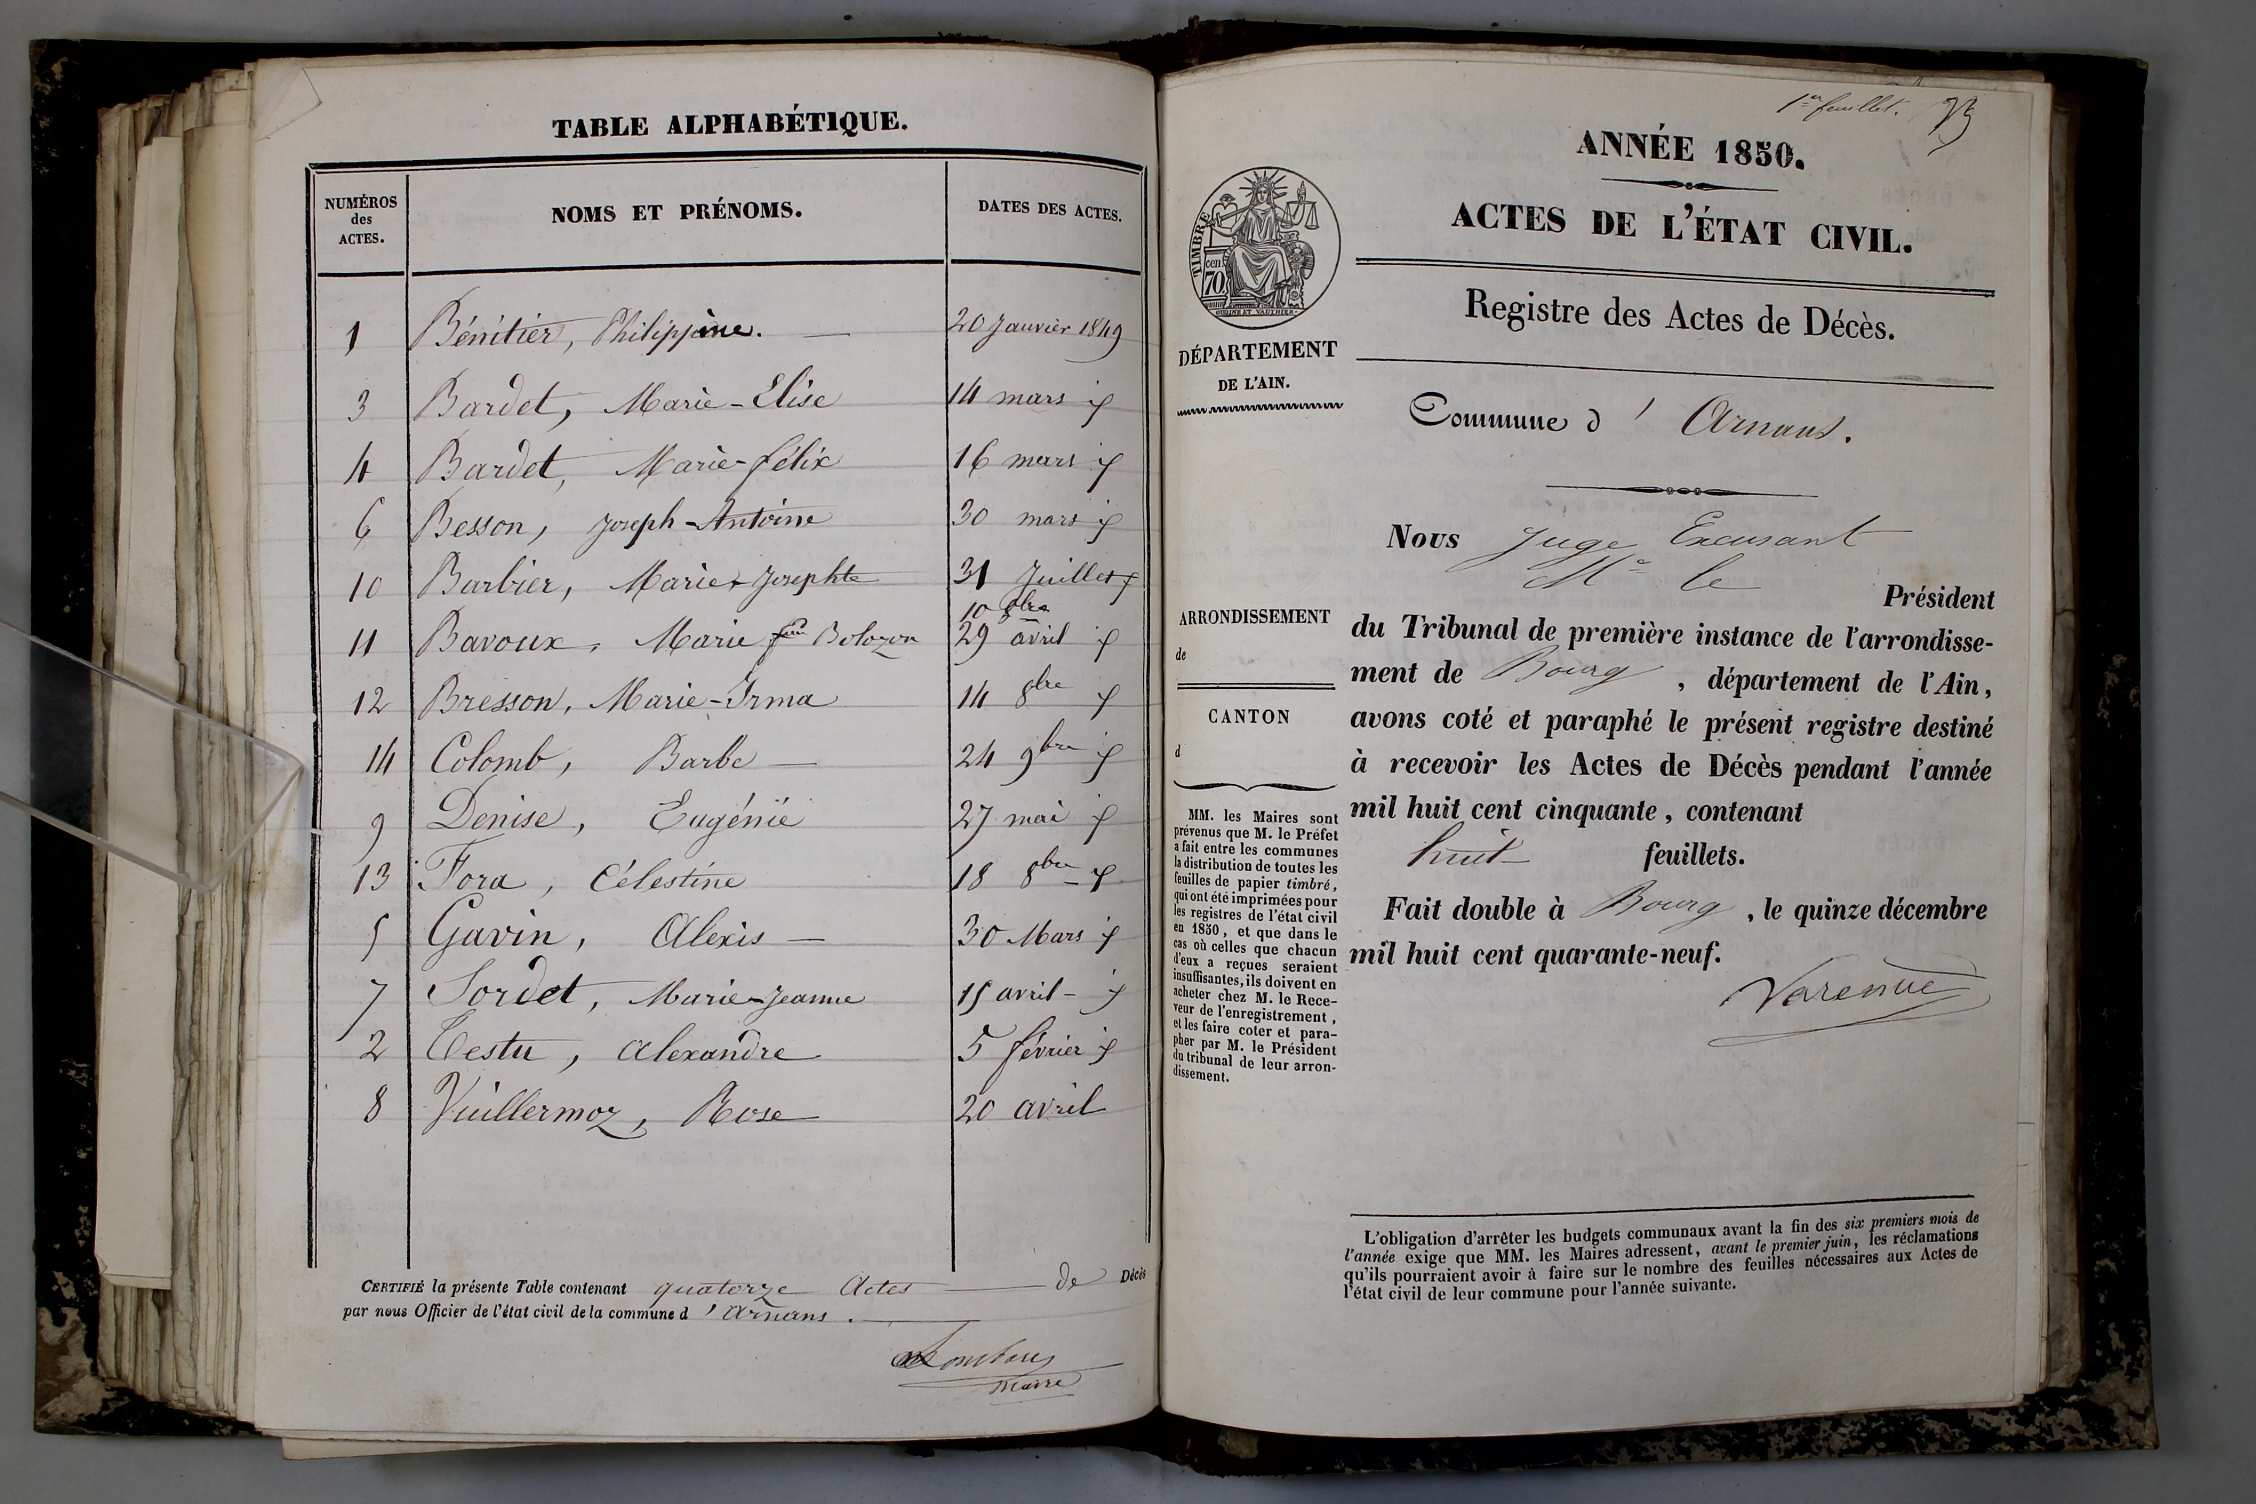 TABLE ALPHABÉTIQUE.
NUMÉROS
des
ACTES.
NOMS ET PRÉNOMS.
DATES DES ACTES.
1 Bénitier, Philippine. 20 Janvier 1849
3 Bardet, Marie-Elise 14 mars
4 Bardet, Marie-félix 16 mars
6 Besson, Joseph-Antoine 30 mars
10 Barbier, Marie-Josephte 31 Juillet
10 8bre
11 Bavoux, Marie fme Bolozon 29 avril
12 Bresson, Marie-Irma 14 8bre
14 Colomb, Barbe 24 9bre
9 Denise, Eugénie 27 mai
13 Fora, Célestine 18 8bre
5 Gavin, Alexis 30 Mars
7 Sordet, Marie-Jeanne 15 avril
2 Testu, Alexandre 5 février
8 Vuillermoz, Rose 20 avril
CERTIFIÉ la présente Table contenant quatorze Actes de Décès
par nous Officier de l'état civil de la commune d'Arnans.
maire
1er feuillet.
ANNÉE 1850.
ACTES DE L'ÉTAT CIVIL.
Registre des Actes de Décès.
TIMBRE
70 cen
OUDINÉ ET VAUTHIER
DÉPARTEMENT
DE L'AIN.
Commune d'Arnans.
ARRONDISSEMENT
de
CANTON
d
MM. les Maires sont
prévenus que M. le Préfet
a fait entre les communes
la distribution de toutes les
feuilles de papier timbré,
qui ont été imprimées pour
les registres de l'état civil
en 1850, et que dans le
cas où celles que chacun
d'eux a reçues seraient
insuffisantes, ils doivent en
acheter chez M. le Rece-
veur de l'enregistrement,
et les faire coter et para-
pher par M. le Président
du tribunal de leur arron-
dissement.
Nous Juge Excusant
Mr le
Président
du Tribunal de première instance de l'arrondisse-
ment de Bourg, département de l'Ain,
avons coté et paraphé le présent registre destiné
à recevoir les Actes de Décès pendant l'année
mil huit cent cinquante, contenant
huit feuillets.
Fait double à Bourg, le quinze décembre
mil huit cent quarante-neuf.
Varenne
L'obligation d'arrêter les budgets communaux avant la fin des six premiers mois de
l'année exige que MM. les Maires adressent, avant le premier juin, les réclamations
qu'ils pourraient avoir à faire sur le nombre des feuilles nécessaires aux Actes de
l'état civil de leur commune pour l'année suivante.